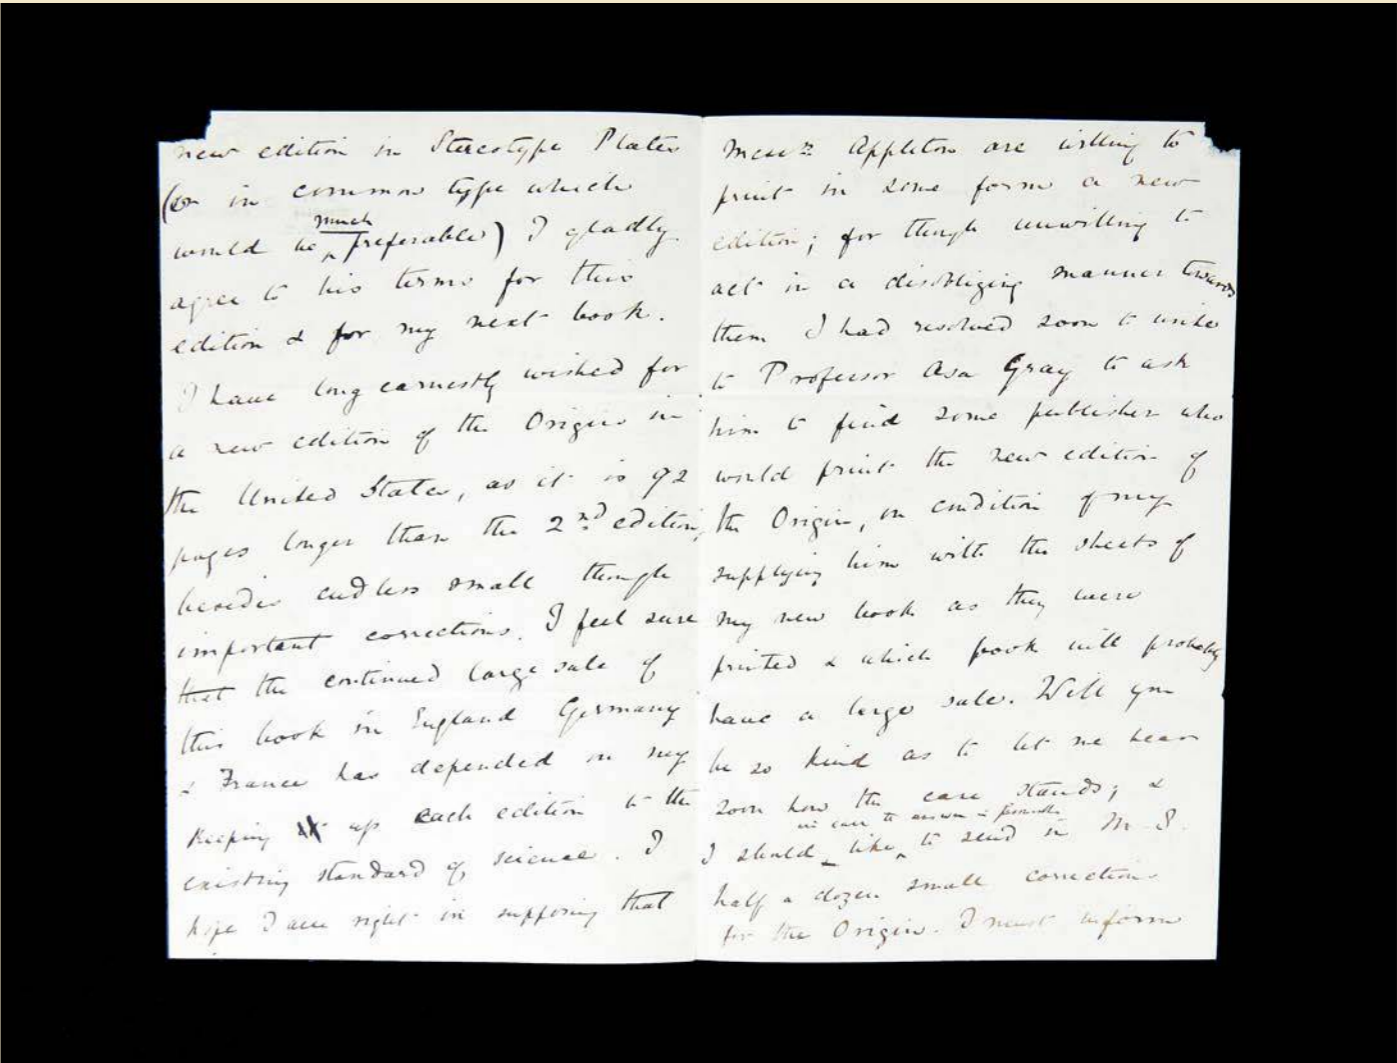 new edition in Stereotype Plates
(or in common type which
much
would be preferable) I gladly
agree to his terms for this
edition & for my next book.
I have long earnestly wished for
a new edition of the Origin in
the United States, as it is 92
pages longer than the 2nd edition,
besides endless small though
important corrections. I feel sure
that the continued large sale of
this book in England Germany
& France has depended on my
keeping up each edition to the
existing standard of science. I
hope I am right in supposing that
Messrs Appleton are willing to
print in some form a new
edition; for though unwilling to
act in a disobliging manner towards
them I had resolved soon to write
to Professor Asa Gray to ask
him to find some publisher who
would print the new edition of
the Origin, on condition of my
supplying him with the sheets of
my new book as they were
printed & which book will probably
have a large sale. Will you
be so kind as to let me hear
soon how the case stands; &
in case the answer is favourable
I should like to send in M.S.
half a dozen small corrections
for the Origin. I must inform